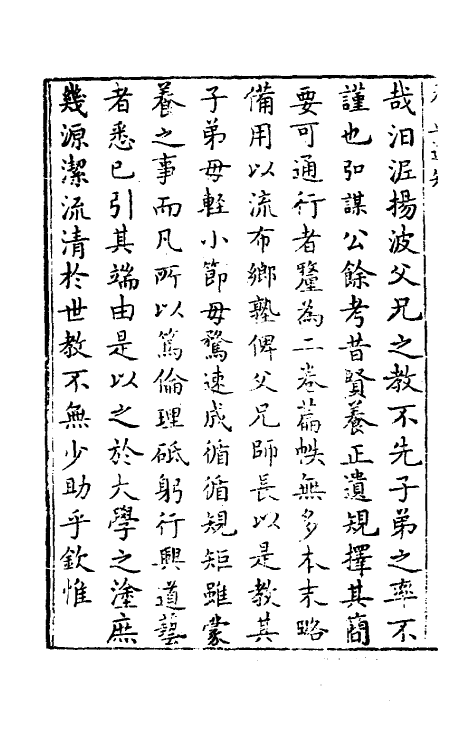 哉汨泥揚波父兄之教不先子弟之率不
謹也弘謀公餘考昔賢養正遺規擇其簡
要可通行者釐為二卷篇帙無多本末略
備用以流布鄉塾俾父兄師長以是教其
子弟毋輕小節毋騖速成循循規矩雖蒙
養之事而凡所以篤倫理砥躬行興道藝
者悉已引其端由是以之於大學之塗庶
幾源潔流清於世教不無少助乎欽惟